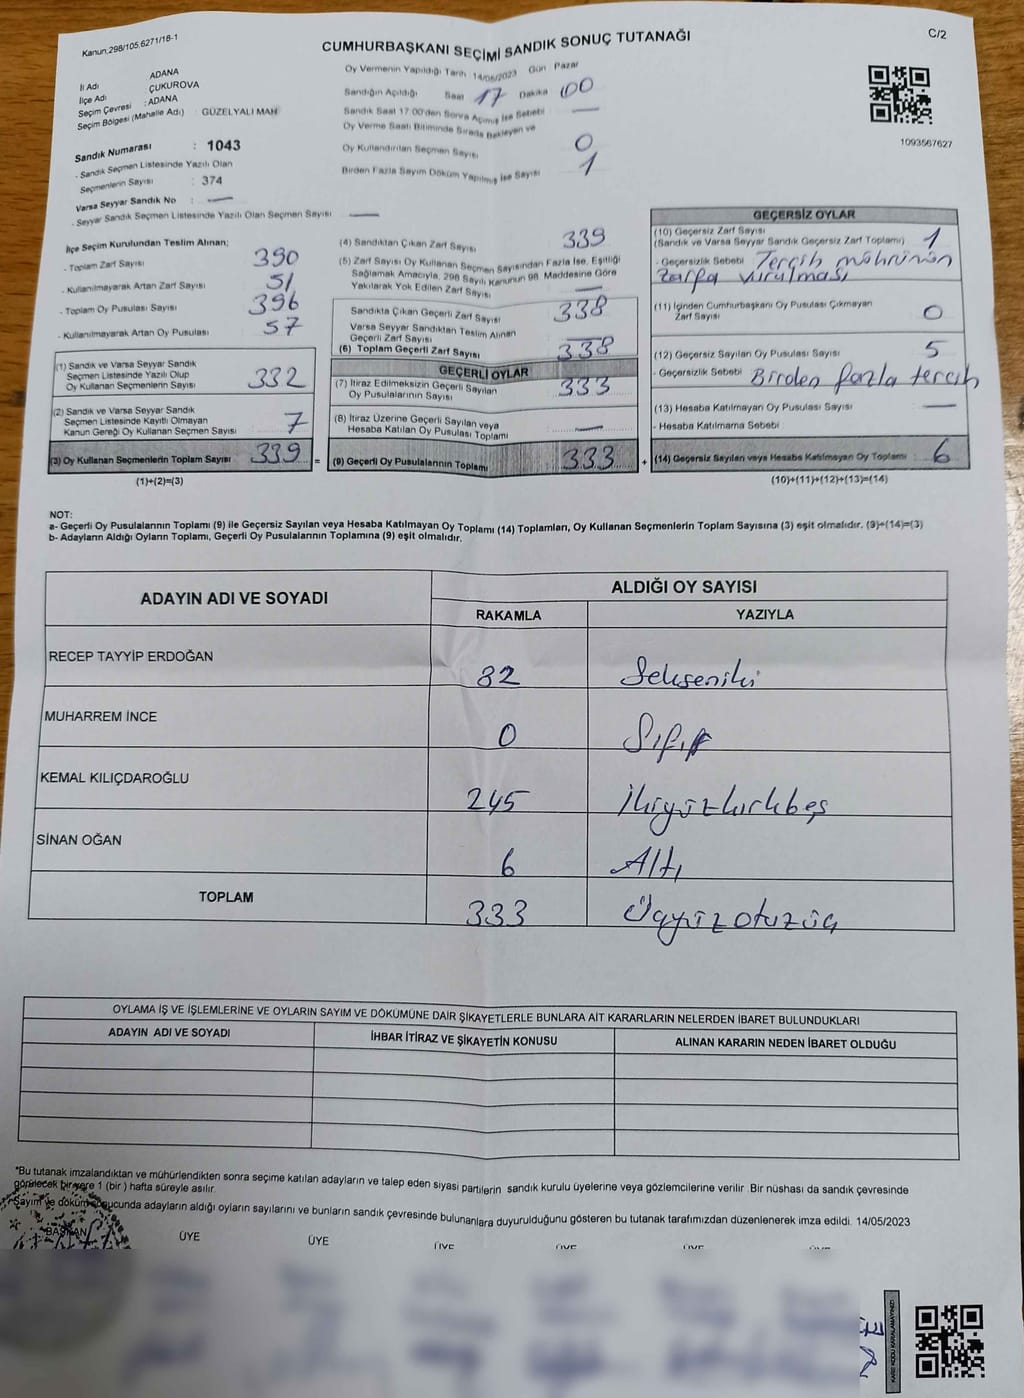 Kanun,298/105,6271/18-1
CUMHURBAŞKANI SEÇİMİ SANDIK SONUÇ TUTANAĞI
C/2
İl Adı ADANA
İlçe Adı ÇUKUROVA
Seçim Çevresi : ADANA
Seçim Bölgesi (Mahalle Adı) GÜZELYALI MAH
Oy Vermenin Yapıldığı Tarih 14/05/2023 Gün Pazar
Sandığın Açıldığı Saat 17 Dakika 00
Sandık Saat 17:00'den Sonra Açılmış İse Sebebi —
Oy Verme Saati Bitiminde Sırada Bekleyen ve
Oy Kullandırılan Seçmen Sayısı 0
Birden Fazla Sayım Döküm Yapılmış İse Sayısı 1
1093567627
Sandık Numarası : 1043
- Sandık Seçmen Listesinde Yazılı Olan
Seçmenlerin Sayısı : 374
Varsa Seyyar Sandık No : —
- Seyyar Sandık Seçmen Listesinde Yazılı Olan Seçmen Sayısı —
İlçe Seçim Kurulundan Teslim Alınan;
- Toplam Zarf Sayısı 390
- Kullanılmayarak Artan Zarf Sayısı 51
- Toplam Oy Pusulası Sayısı 396
- Kullanılmayarak Artan Oy Pusulası 57
(1) Sandık ve Varsa Seyyar Sandık
Seçmen Listesinde Yazılı Olup
Oy Kullanan Seçmenlerin Sayısı 332
(2) Sandık ve Varsa Seyyar Sandık
Seçmen Listesinde Kayıtlı Olmayan
Kanun Gereği Oy Kullanan Seçmen Sayısı 7
(3) Oy Kullanan Seçmenlerin Toplam Sayısı 339 =
(1)+(2)=(3)
(4) Sandıktan Çıkan Zarf Sayısı 339
(5) Zarf Sayısı Oy Kullanan Seçmen Sayısından Fazla İse, Eşitliği
Sağlamak Amacıyla, 298 Sayılı Kanunun 98. Maddesine Göre
Yakılarak Yok Edilen Zarf Sayısı —
Sandıkta Çıkan Geçerli Zarf Sayısı 338
Varsa Seyyar Sandıktan Teslim Alınan
Geçerli Zarf Sayısı —
(6) Toplam Geçerli Zarf Sayısı 338
GEÇERLİ OYLAR
(7) İtiraz Edilmeksizin Geçerli Sayılan
Oy Pusulalarının Sayısı 333
(8) İtiraz Üzerine Geçerli Sayılan veya
Hesaba Katılan Oy Pusulası Toplamı —
(9) Geçerli Oy Pusulalarının Toplamı 333 +
GEÇERSİZ OYLAR
(10) Geçersiz Zarf Sayısı
(Sandık ve Varsa Seyyar Sandık Geçersiz Zarf Toplamı) 1
- Geçersizlik Sebebi Tercih mührünün
zarfa vurulması
(11) İçinden Cumhurbaşkanı Oy Pusulası Çıkmayan
Zarf Sayısı 0
(12) Geçersiz Sayılan Oy Pusulası Sayısı 5
- Geçersizlik Sebebi Birden fazla tercih
(13) Hesaba Katılmayan Oy Pusulası Sayısı —
- Hesaba Katılmama Sebebi
(14) Geçersiz Sayılan veya Hesaba Katılmayan Oy Toplamı 6
(10)+(11)+(12)+(13)=(14)
NOT:
a- Geçerli Oy Pusulalarının Toplamı (9) ile Geçersiz Sayılan veya Hesaba Katılmayan Oy Toplamı (14) Toplamları, Oy Kullanan Seçmenlerin Toplam Sayısına (3) eşit olmalıdır. (9)+(14)=(3)
b- Adayların Aldığı Oyların Toplamı, Geçerli Oy Pusulalarının Toplamına (9) eşit olmalıdır.
ADAYIN ADI VE SOYADI
ALDIĞI OY SAYISI
RAKAMLA YAZIYLA
RECEP TAYYİP ERDOĞAN 82 Sekseniki
MUHARREM İNCE 0 Sıfır
KEMAL KILIÇDAROĞLU 245 İkiyüzkırkbeş
SİNAN OĞAN 6 Altı
TOPLAM 333 Üçyüzotuzüç
OYLAMA İŞ VE İŞLEMLERİNE VE OYLARIN SAYIM VE DÖKÜMÜNE DAİR ŞİKAYETLERLE BUNLARA AİT KARARLARIN NELERDEN İBARET BULUNDUKLARI
ADAYIN ADI VE SOYADI İHBAR İTİRAZ VE ŞİKAYETİN KONUSU ALINAN KARARIN NEDEN İBARET OLDUĞU
*Bu tutanak imzalandıktan ve mühürlendikten sonra seçime katılan adayların ve talep eden siyasi partilerin sandık kurulu üyelerine veya gözlemcilerine verilir Bir nüshası da sandık çevresinde
görülecek bir yere 1 (bir) hafta süreyle asılır.
Sayım ve döküm sonucunda adayların aldığı oyların sayılarını ve bunların sandık çevresinde bulunanlara duyurulduğunu gösteren bu tutanak tarafımızdan düzenlenerek imza edildi. 14/05/2023
BAŞKAN ÜYE ÜYE ÜYE ÜYE ÜYE ÜYE
KARE KODU KARALAMAYINIZ!